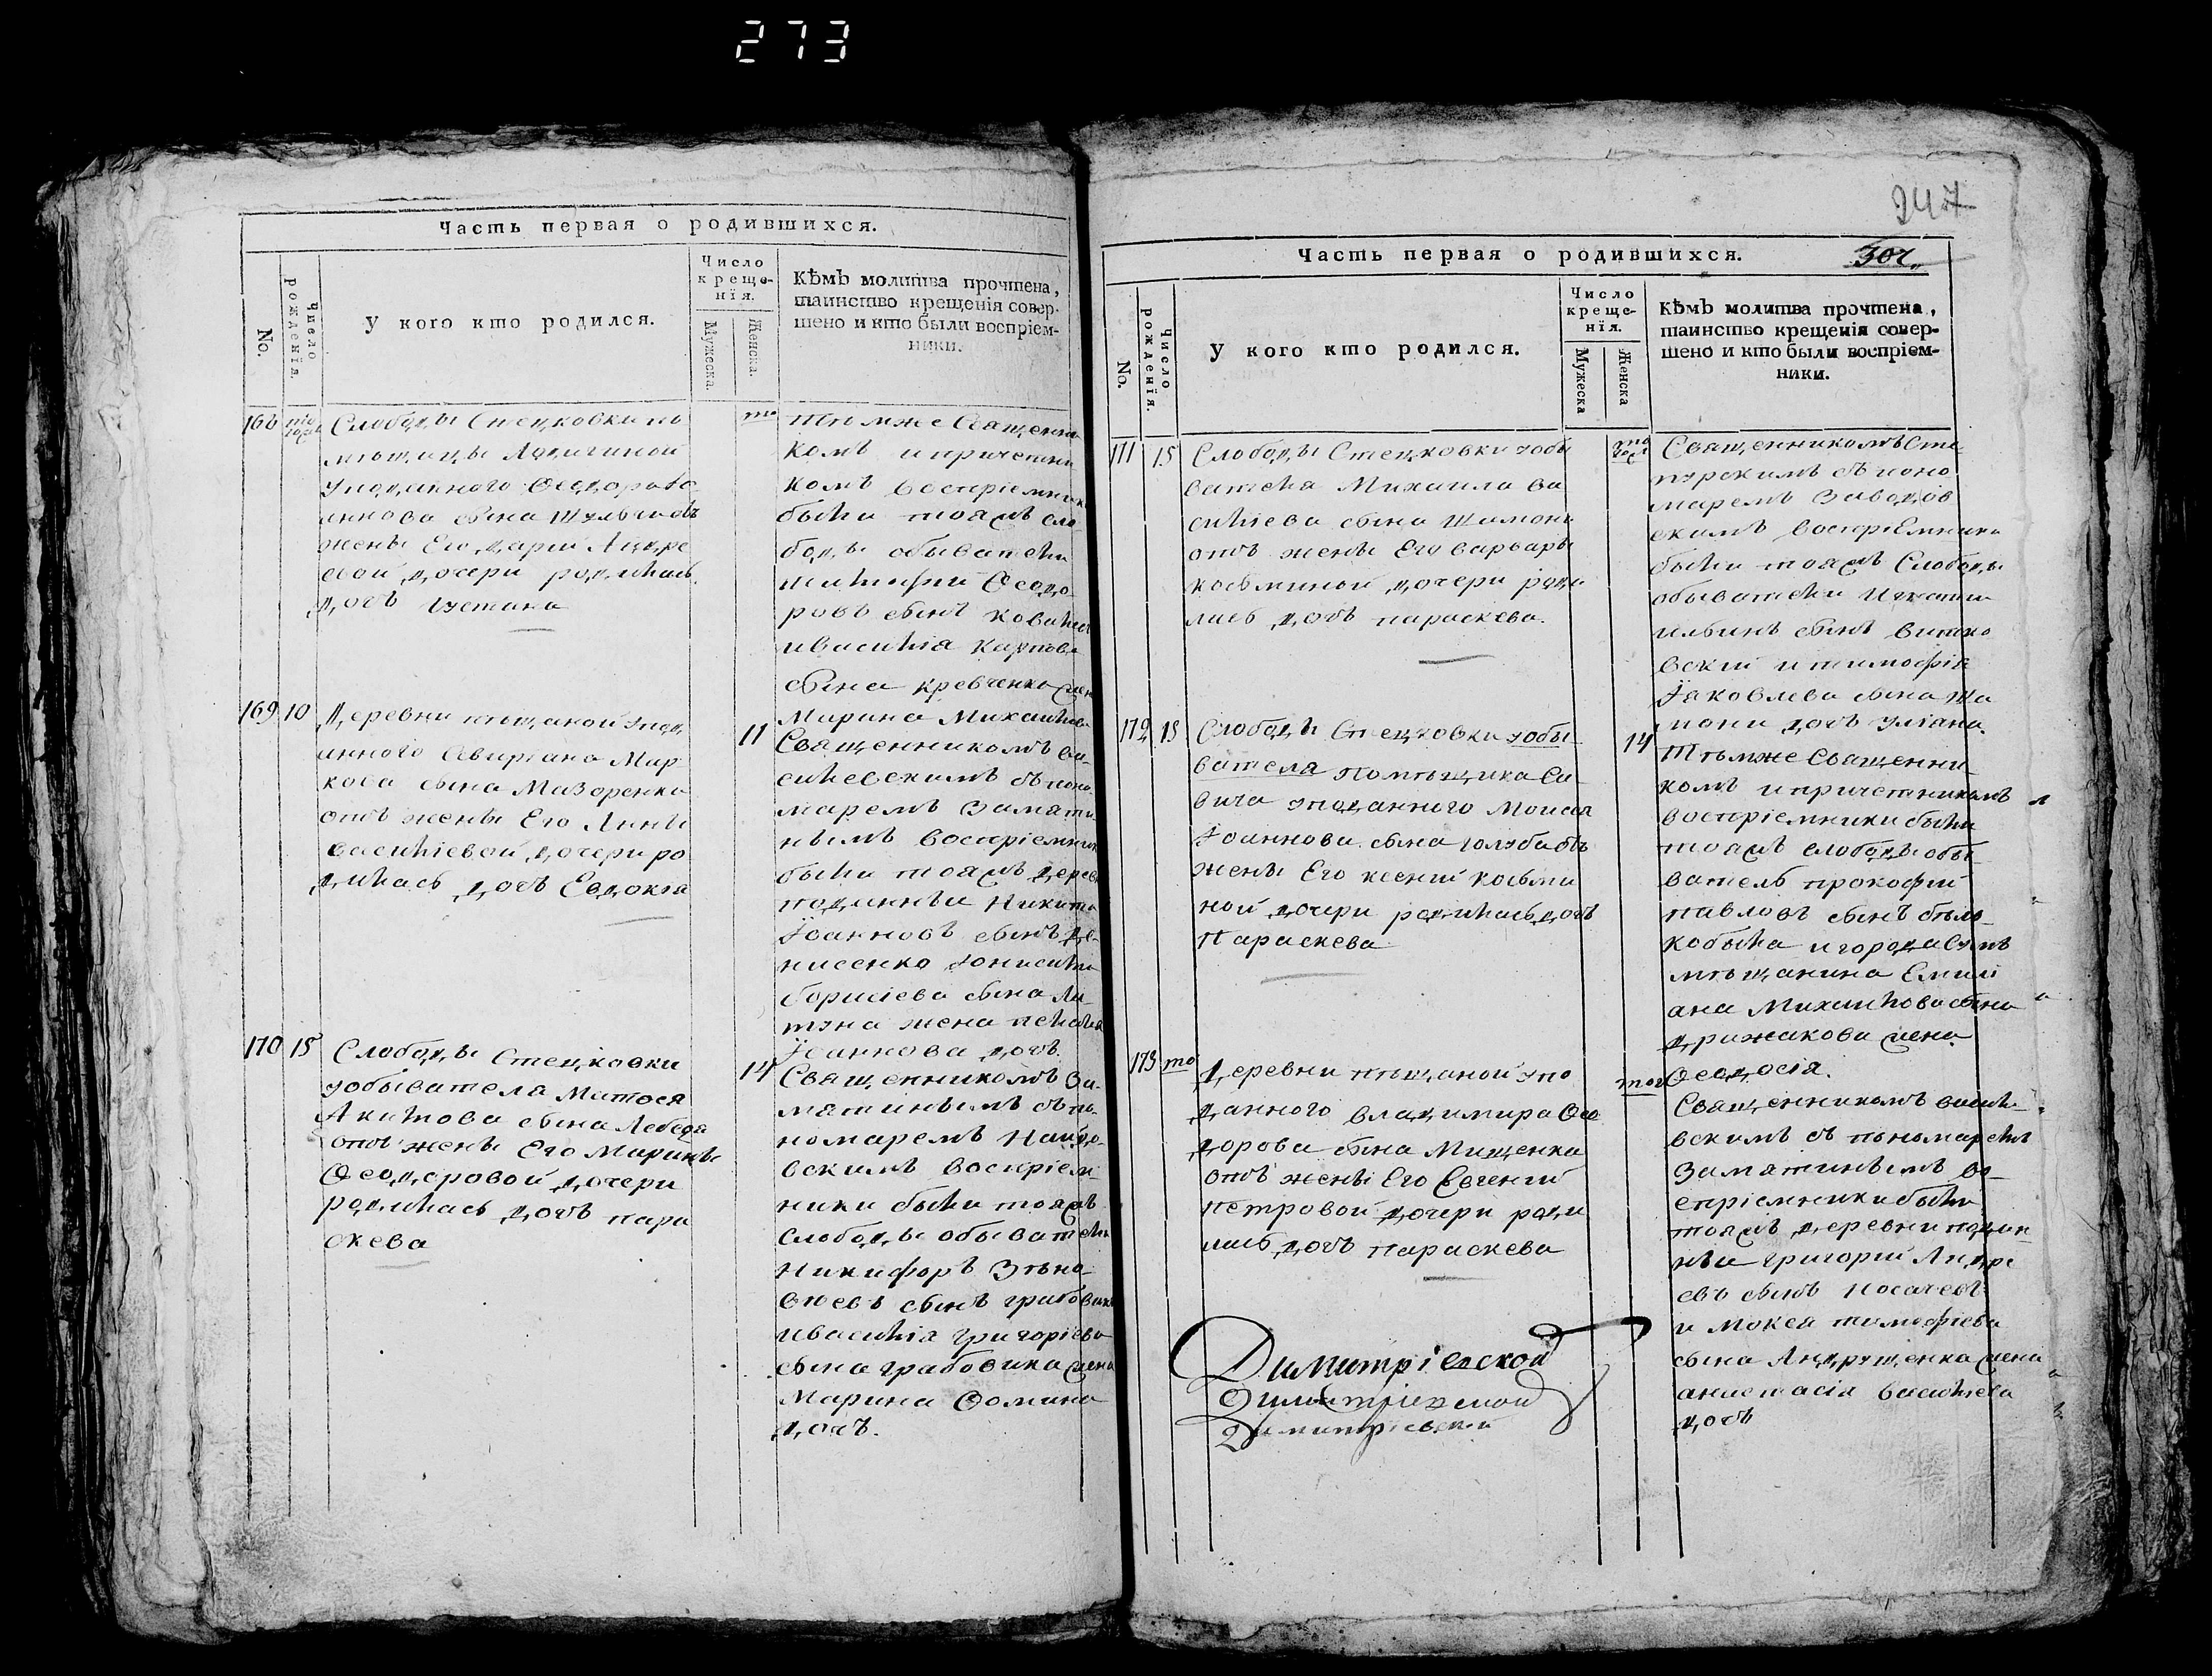 273
Часть первая о родившихся.
No.
Число рожденія.
У кого кто родился.
Число
креще-
нія.
Мужеска.
Женска.
Кѣмъ молитва прочтена,
таинство крещенія совер-
шено и кто были воспріем-
ники.
168
Слободы Стецковки по
мѣщицы
Уподанного Ѳеодора Іо
аннова сына
жены Его Дарій Андре
евой дочери родилась
дочь Іустина
то
Тѣмже Священни
комъ и причетни
комъ воспріемник
были тояжъ сло
боды обыватели
Ѳеодо
ровъ сынъ
и василія Карпова
сына кревченка жена
Марина Михайлова
169 10
Деревни пѣщаной упод
анного Севиріана Мар
кова сына Мазоренка
отъ жены Его Анны
василіевой дочери ро
дилась дочь Евдокія
11
Священникомъ ва
силевскимъ съ поно
маремъ Замяти
нымъ воспріемник
были тояжъ дерев
подаинныи Никита
Іоанновъ сынъ де-
нисенко
борисіева сына Ла-
туна жена пелагія
Іоаннова дочь.
170 15
Слободы Стецковки
уобывателя Матөея
Акимова сына Лебедя
отъ жены Его Марины
Ѳеодоровой дочери
родилась дочь пара
скева
14
Священникомъ За-
мятинымъ съ по-
номаремъ
вскимъ воспріем
ники были тояжъ
слободы обыватели
Никифоръ Зѣно-
віевъ сынъ грабовик
и василія григоріева
сына грабовика жена
Марина Ѳомина
дочь.
247
Часть первая о родившихся.
301.
No.
Число рожденія.
У кого кто родился.
Число
креще-
нія.
Мужеска
Женска
Кѣмъ молитва прочтена,
таинство крещенія совер-
шено и кто были воспріем-
ники.
171 15
Слободы Стецковки уобы
вателя Михаила ва
силіева сына Шапони
отъ жены Его варвары
косьминой дочери роди
лась дочь параскева.
Священникомъ Ста
пурскимъ съ поно
маремъ Заводов
скимъ воспріемники
были тояжъ Слободы
обыватели Игнатии
ильинъ сынъ витко
вскій и тимофія
Іаковлева сына Ша
пони дочь уліана.
172 15
Слободы Стецковки уобы-
вателя помѣщика Са-
вича уподанного Моисея
Іоаннова сына голуба отъ
жены Его ксеній косьми
ной дочери родилась дочь
Параскева
14
Тѣмже Священни-
комъ и причетникомъ
воспріемники были
тояжъ слободы обы
ватель прокофій
павловъ сынъ бѣло-
кобыла и города Сумъ
мѣщанина Емили
ана Михайлова сына
дрижакова жена
Ѳеодосія.
173 то
Деревни пѣщаной упо
данного владимира Ѳео
дорова сына Мищенка
отъ жены Его Евгеній
петровой дочери роди
лась дочь параскева
Священникомъ васил-
вскимъ съ пономаремъ
Замятинымъ во-
спріемники были
тояжъ деревни подан
ныи григорій Андре
евъ сынъ Носачевъ
и Мокея тимофіева
сына Андрущенка жена
анастасія василіева
дочь
Димитріевской
Димитріевской
Димитріевской